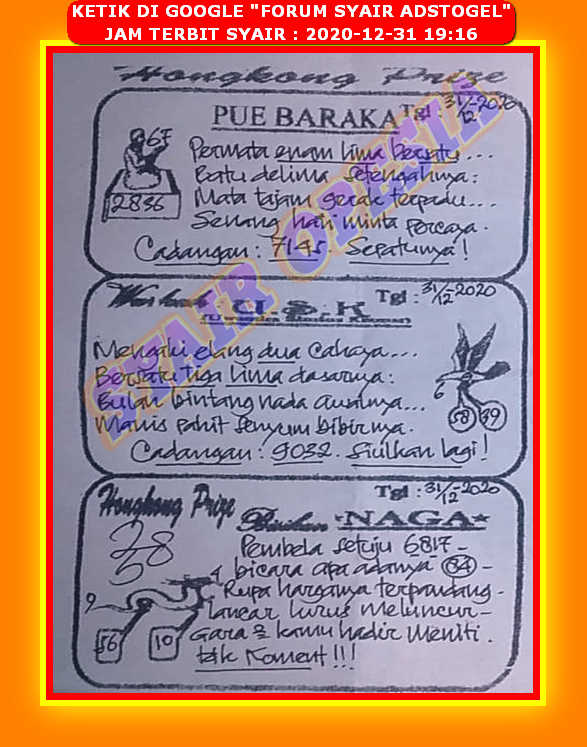 KETIK DI GOOGLE "FORUM SYAIR ADSTOGEL"
JAM TERBIT SYAIR : 2020-12-31 19:16
Hongkong Prize
PUE BARAKA Tgl : 31/12-2020
67
2836
Permata enam lima bersatu...
Batu delima setengahnya:
Mata tajam gerak terpadu...
Senang hati minta percaya.
Cadangan : 7145. Sepatunya!
SYAIR OPESIA
U.S.K Tgl : 31/12-2020
Mengaku elang dua cahaya...
Bersatu tiga lima dasarnya:
Bulan bintang nada auranya...
Manis pahit senyum bibirnya.
Cadangan : 9032. Siulkan lagi!
6
58 39
Hongkong Prize
Tgl : 31/12-2020
Bisikan *NAGA*
38
5
Pembela setuju 6817-
bicara apa adanya 34-
Rupa harganya terpandang-
lancar lurus meluncur-
Gara2 kamu hadir meniti.
tak Koment!!!
4
9
56 10